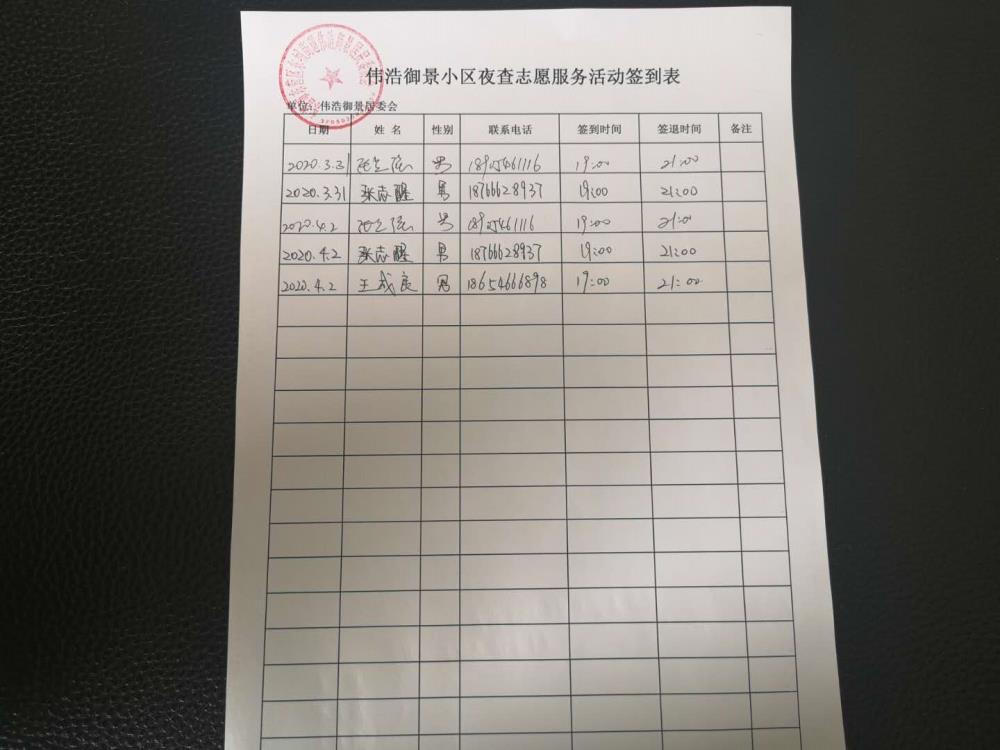 伟浩御景小区夜查志愿服务活动签到表
单位：伟浩御景居委会
日期 姓 名 性别 联系电话 签到时间 签退时间 备注
2020.3.31 男 18905461116 19:00 21:00
2020.3.31 张志醒 男 18766628937 19:00 21:00
2020.4.2 男 18905461116 19:00 21:00
2020.4.2 张志醒 男 18766628937 19:00 21:00
2020.4.2 王成良 男 18654666898 19:00 21:00